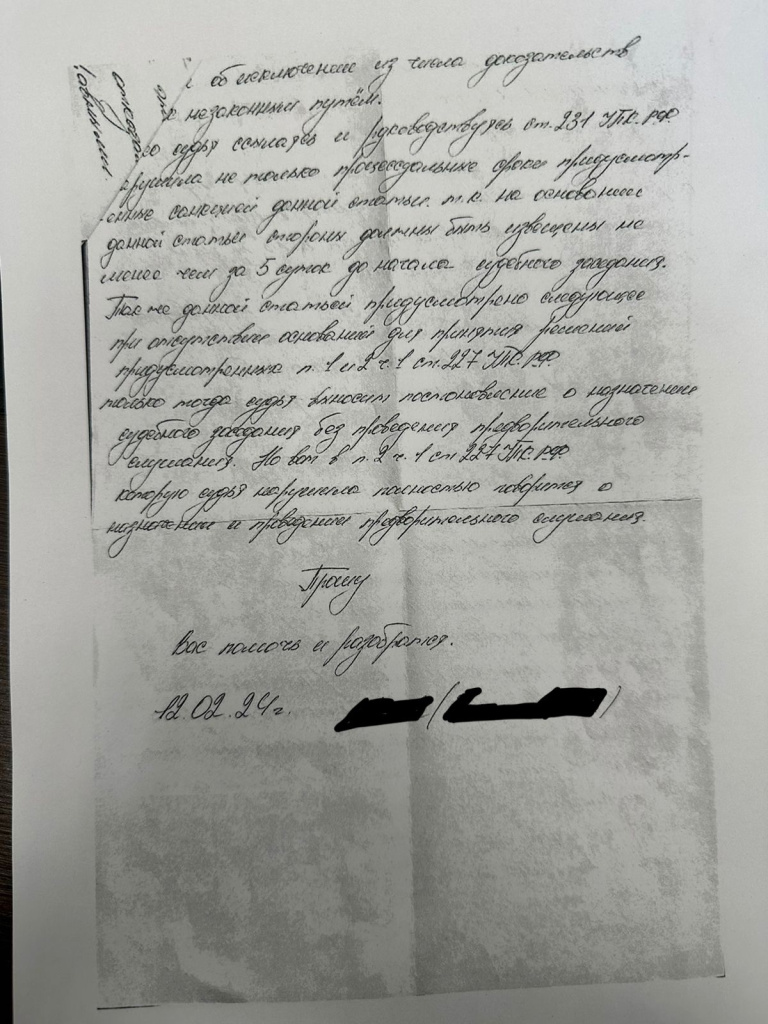 об исключении из числа доказательств
незаконным путём.
судья ссылаясь и руководствуясь ст. 231 УПК. РФ.
не только процессуальные сроки придусмотр-
енные санкцией данной статьи. т.к. на основании
данной статьи стороны должны быть извещены не
менее чем за 5 суток до начала судебного заседания.
Так же данной статьёй придусмотрено следующее
при отсутствии оснований для принятия решений
придусмотренных п. 1 и 2 ч. 1 ст. 227 УПК. РФ.
только тогда судья выносит постановление о назначении
судебного заседания без проведения предворительного
слушания. Но вот в п. 2 ч. 1 ст. 227 УПК. РФ.
которую судья нарушила полностью говорится о
назначении и проведении предворительного слушания.
Прошу
Вас помочь и разобратся.
12.02.24г. ( )